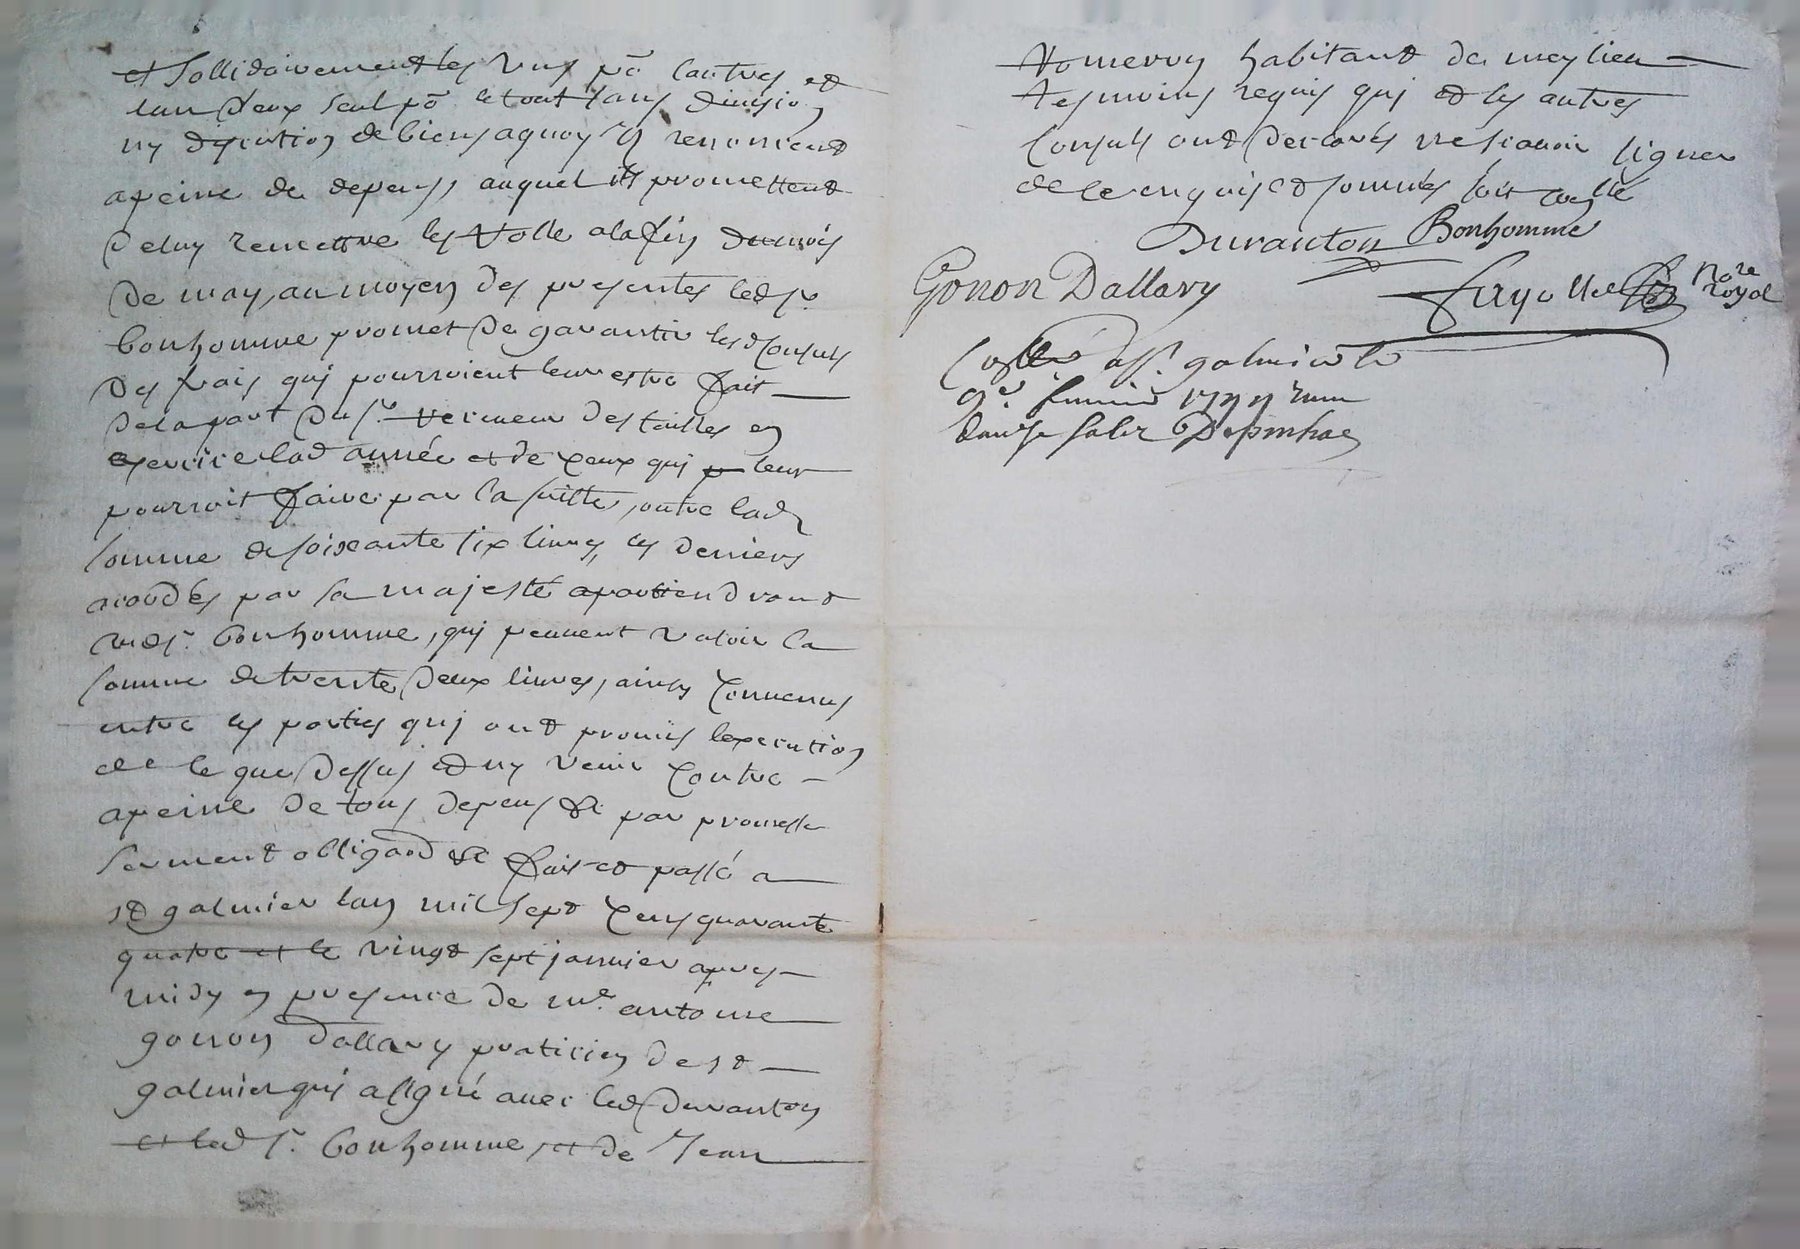 et sollidairement les uns po lautres et
lun deux seul po le tout sans division
ny discution de biens aquoy ils renoncent
apeine de depens, auquel ils promettent
de luy remettre les rolle alafin du mois
de may, au moyen des presentes led sr
bonhomme promet de garantir lesd consuls
des frais qui pourroient leur estre fait
de la part du sr receveur des tailles en
exercice lad année et de ceux qui leur
pourroit faire par la suitte, outre lad
somme de soixante six livres, les deniers
acordés par sa majesté apartiendront
aud sr. bonhomme, qui peuvent valoir la
somme de trente deux livres, ainsy convenus
entre les parties qui ont promis lexecution
de ce que dessus et ny venir contre
apeine de tous depens &c par promesse
serment obligaon &c fait et passé a
st galmier lan mil sept cens quarante
quatre et le vingt sept janvier apres
midy en presence de me. antoine
gonon dallary praticien de st
galmier qui a signé avec led duranton
et led sr. bonhomme et de Jean
habitant de meylieu
tesmoins requis qui et les autres
consuls ont declarés ne scavoir signer
de ce enquis et sommés soit
Duranton Bonhomme
Gonon Dallary Nore royal
galmier le